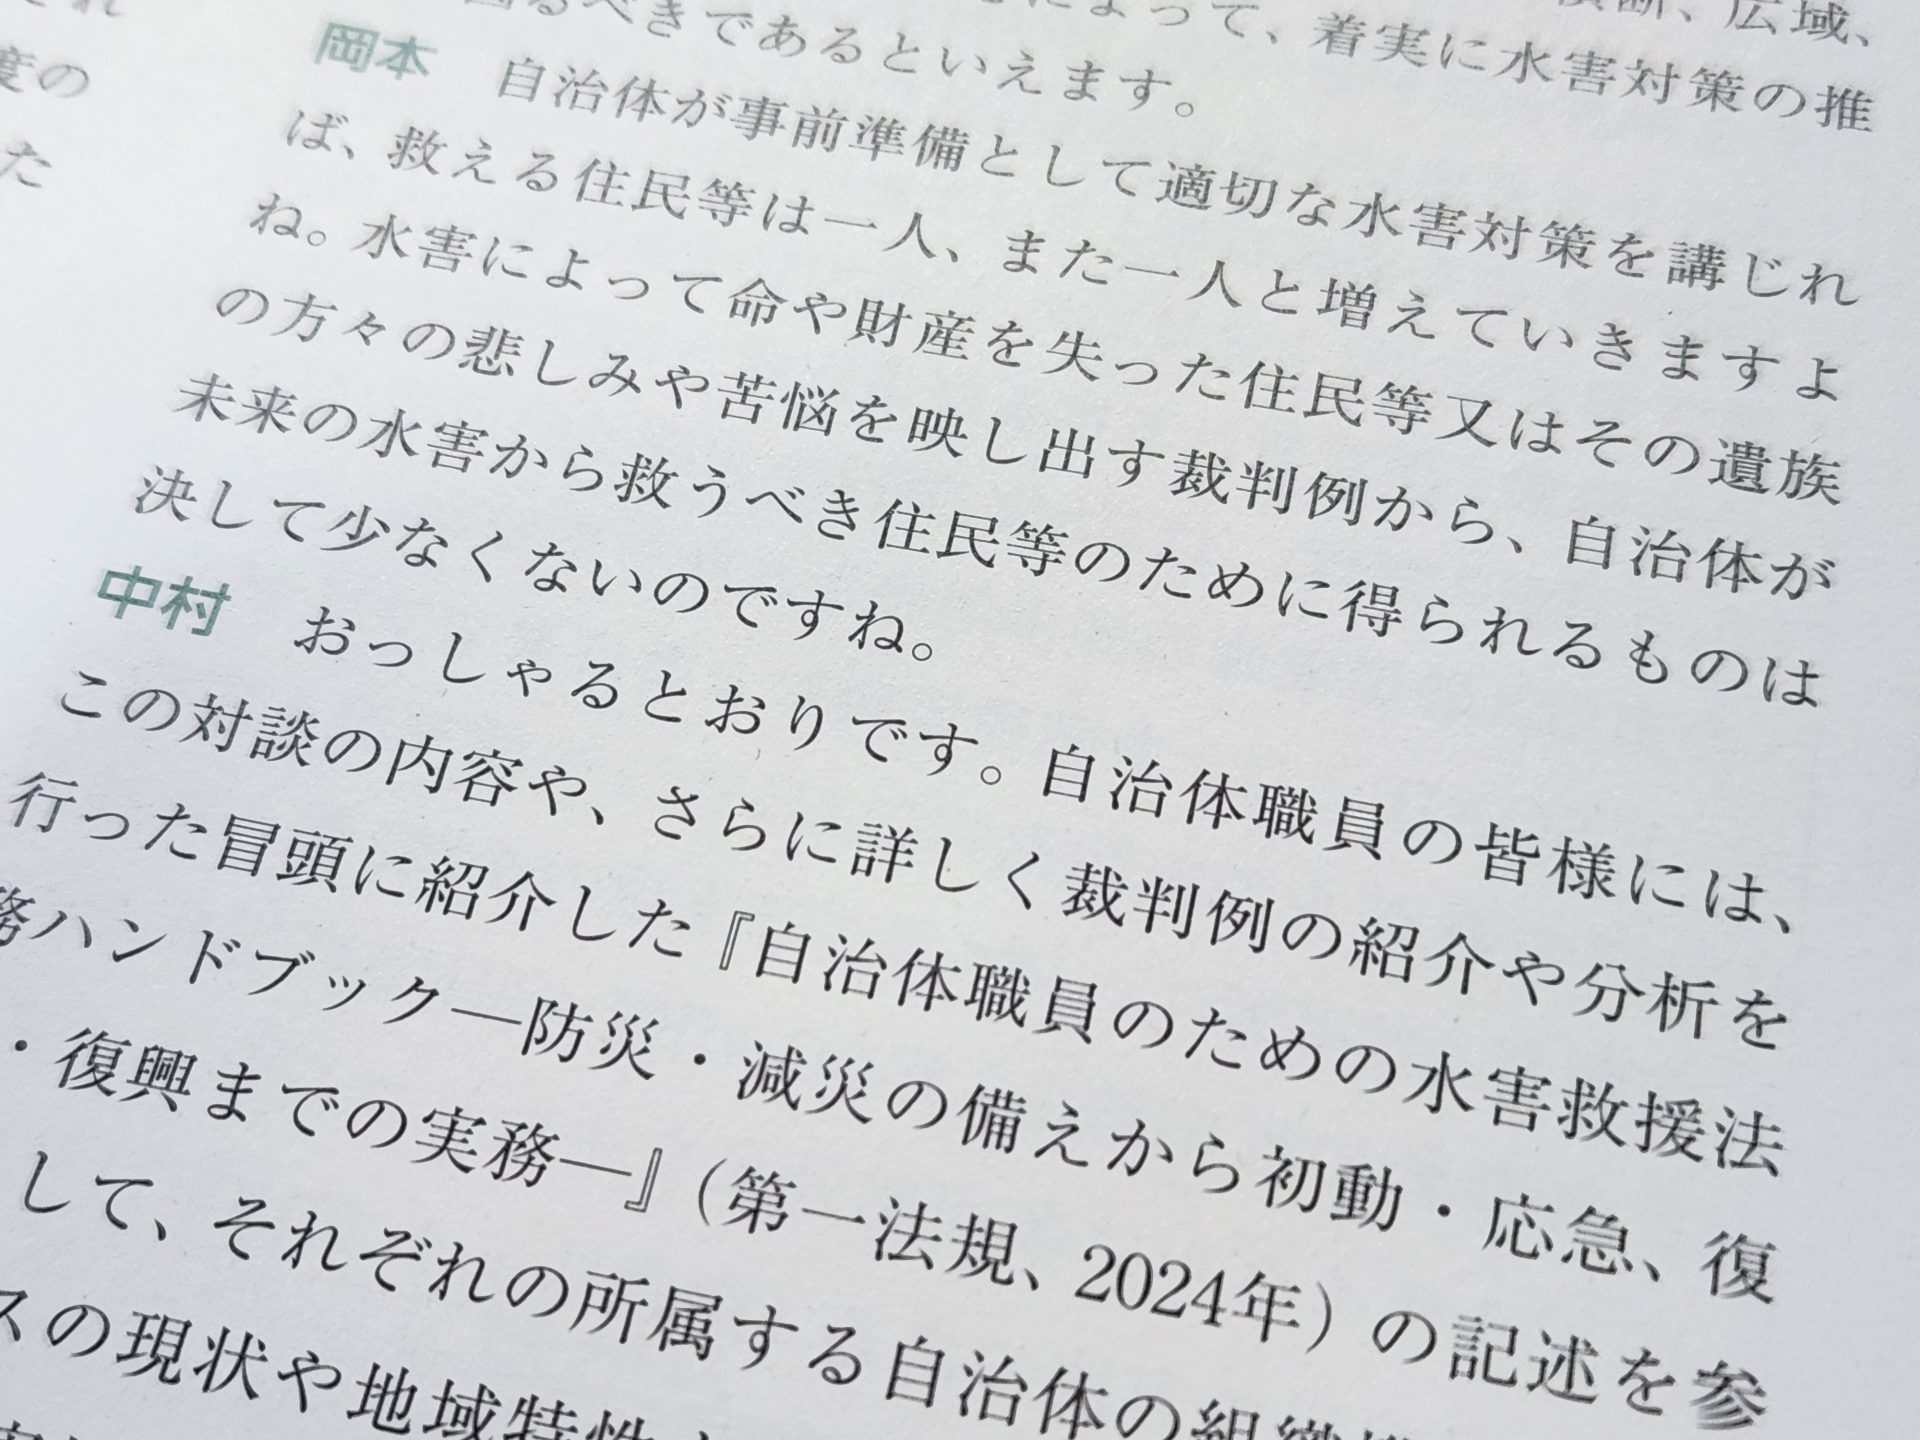 度の
た
横断、広域、
図るべきであるといえます。
よって、着実に水害対策の推
岡本　自治体が事前準備として適切な水害対策を講じれ
ば、救える住民等は一人、また一人と増えていきますよ
ね。水害によって命や財産を失った住民等又はその遺族
の方々の悲しみや苦悩を映し出す裁判例から、自治体が
未来の水害から救うべき住民等のために得られるものは
決して少なくないのですね。
中村　おっしゃるとおりです。自治体職員の皆様には、
この対談の内容や、さらに詳しく裁判例の紹介や分析を
行った冒頭に紹介した『自治体職員のための水害救援法
務ハンドブック―防災・減災の備えから初動・応急、復
・復興までの実務―』（第一法規、2024年）の記述を参
して、それぞれの所属する自治体の組織
スの現状や地域特性